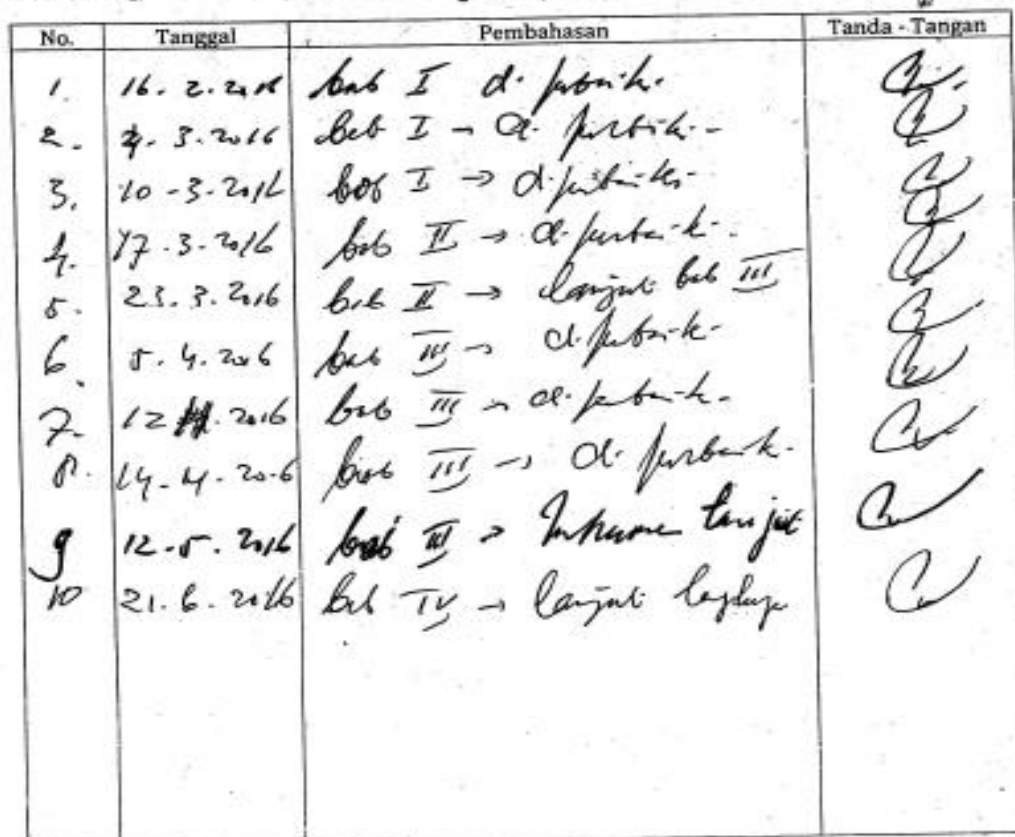 No. Tanggal Pembahasan Tanda - Tangan
1. 16. 2. 2016 bab I diperbaiki.
2. 4. 3. 2016 bab I → diperbaiki -
3. 10 - 3. 2016 bab I → diperbaiki -
4. 17. 3. 2016 bab II → diperbaiki -
5. 23. 3. 2016 bab II → lanjut bab III
6. 5. 4. 2016 bab III → diperbaiki -
7. 12 2016 bab III → diperbaiki -
8. 14. 4. 2016 bab III → diperbaiki.
9 12. 5. 2016 bab III → lanjut
10 21. 6. 2016 bab IV → lanjut